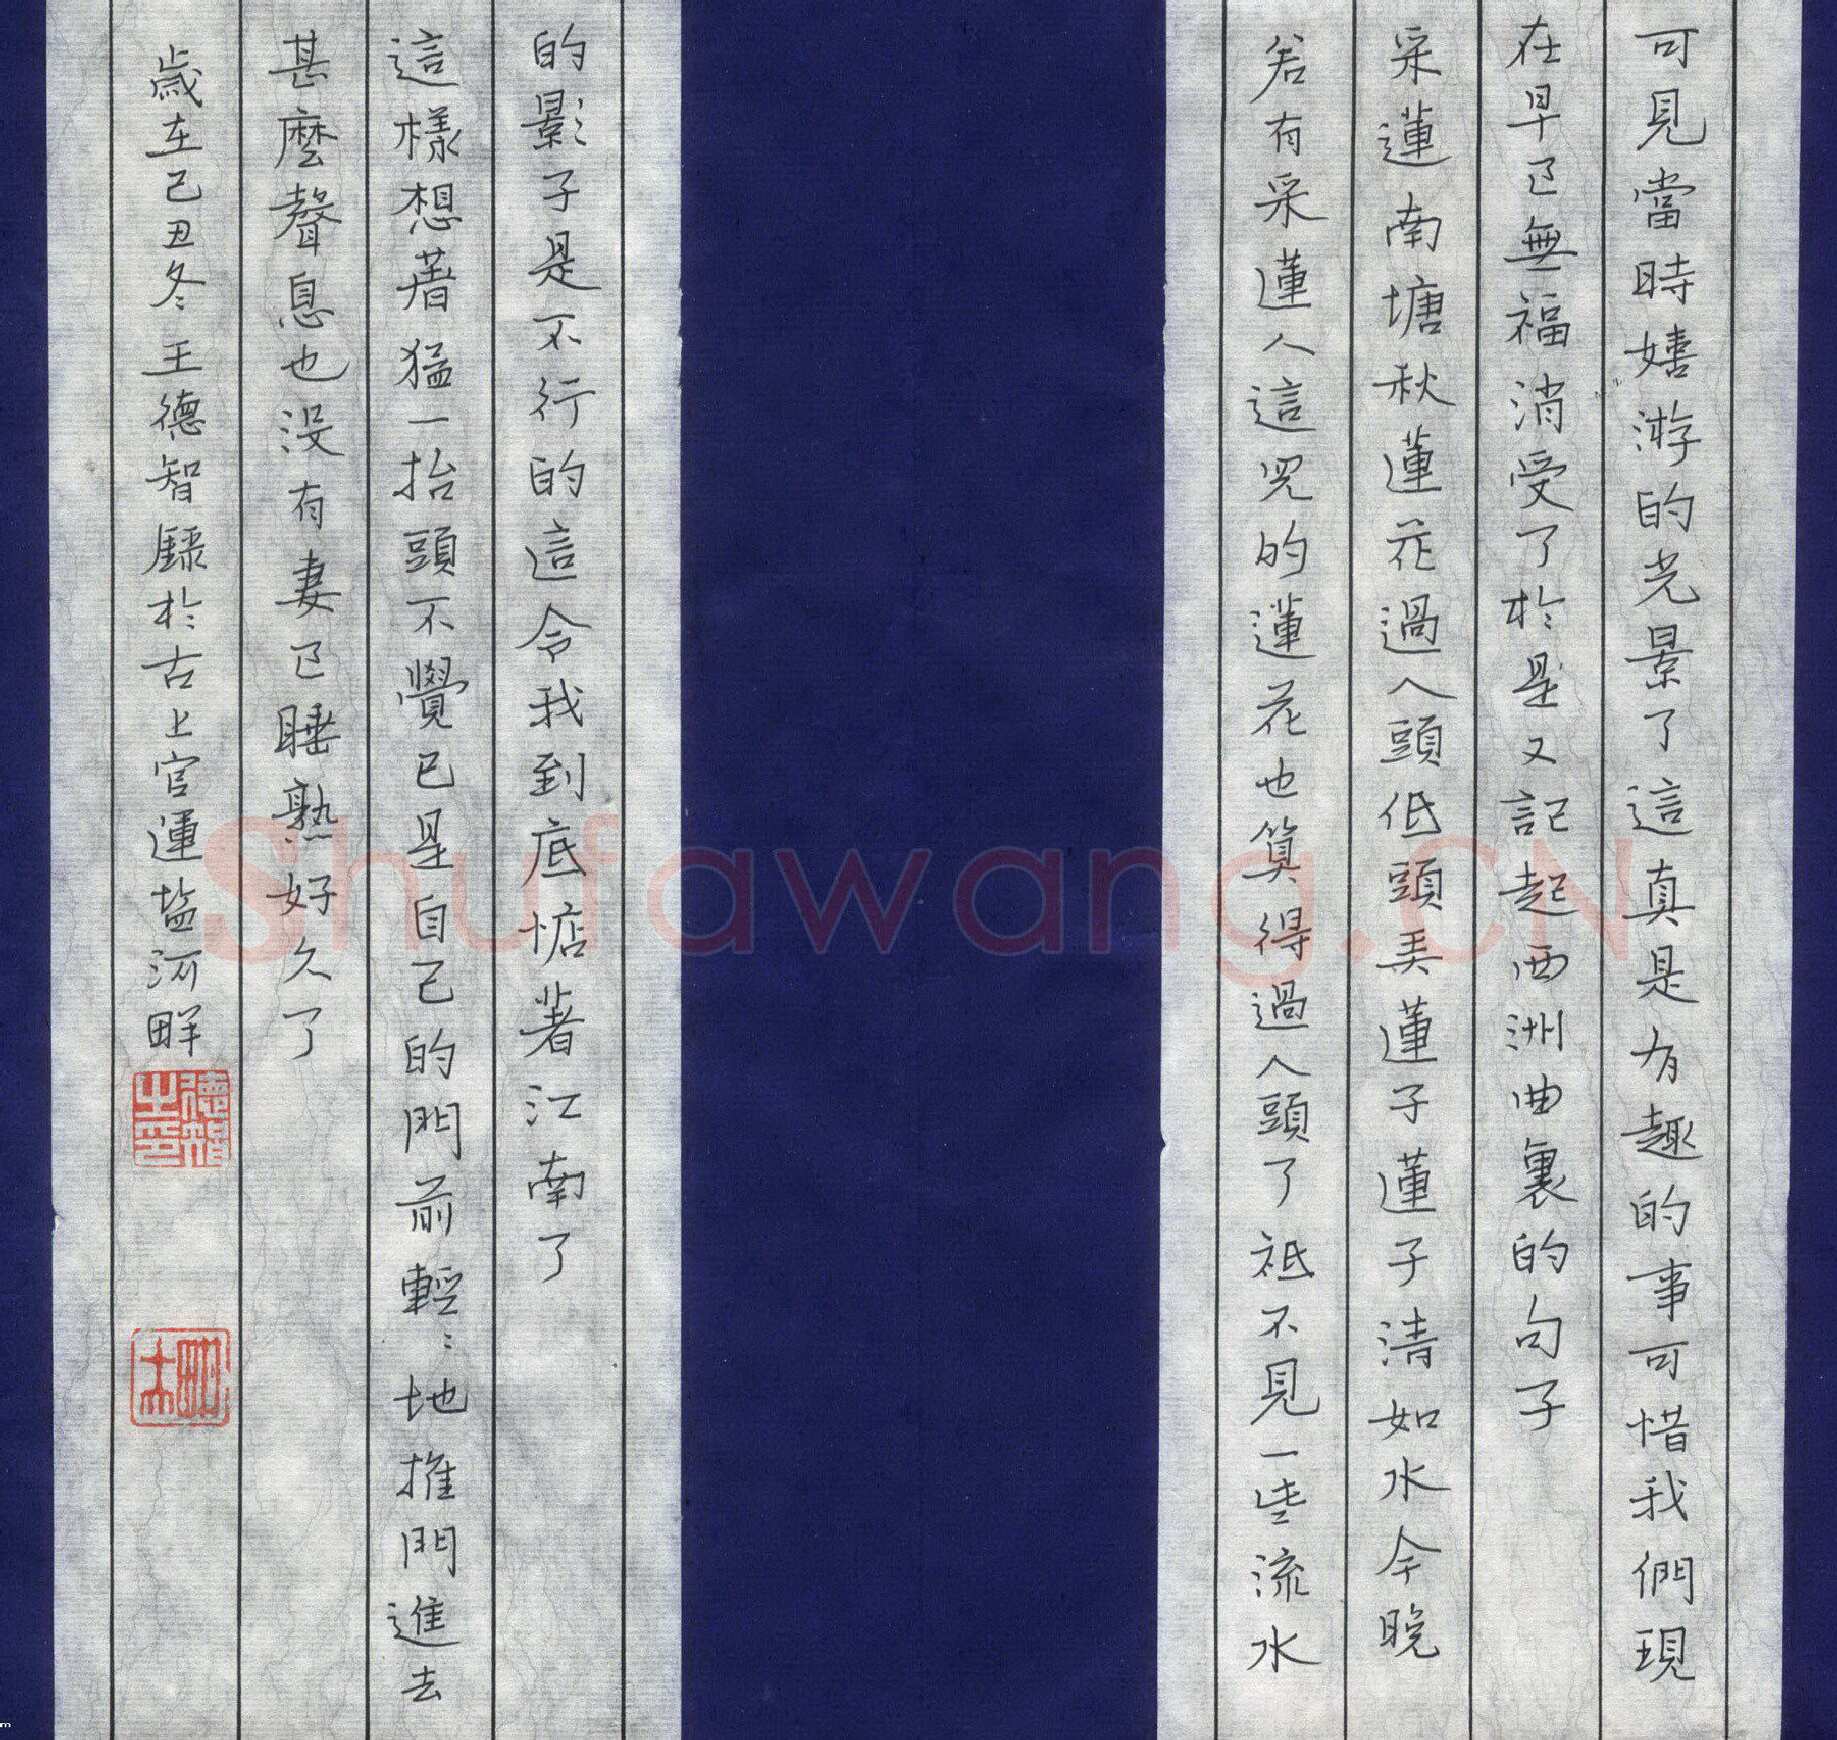 可見當時嬉游的光景了這真是有趣的事可惜我們現
在早已無福消受了於是又記起西洲曲裏的句子
采蓮南塘秋蓮花過人頭低頭弄蓮子蓮子清如水今晚
若有采蓮人這兒的蓮花也算得過人頭了祇不見一些流水
的影子是不行的這令我到底惦著江南了
這樣想著猛一抬頭不覺已是自己的門前輕〻地推門進去
甚麼聲息也没有妻已睡熟好久了
歲在己丑冬王德智録於古上官運鹽河畔
德智之印
Shufawang.CN